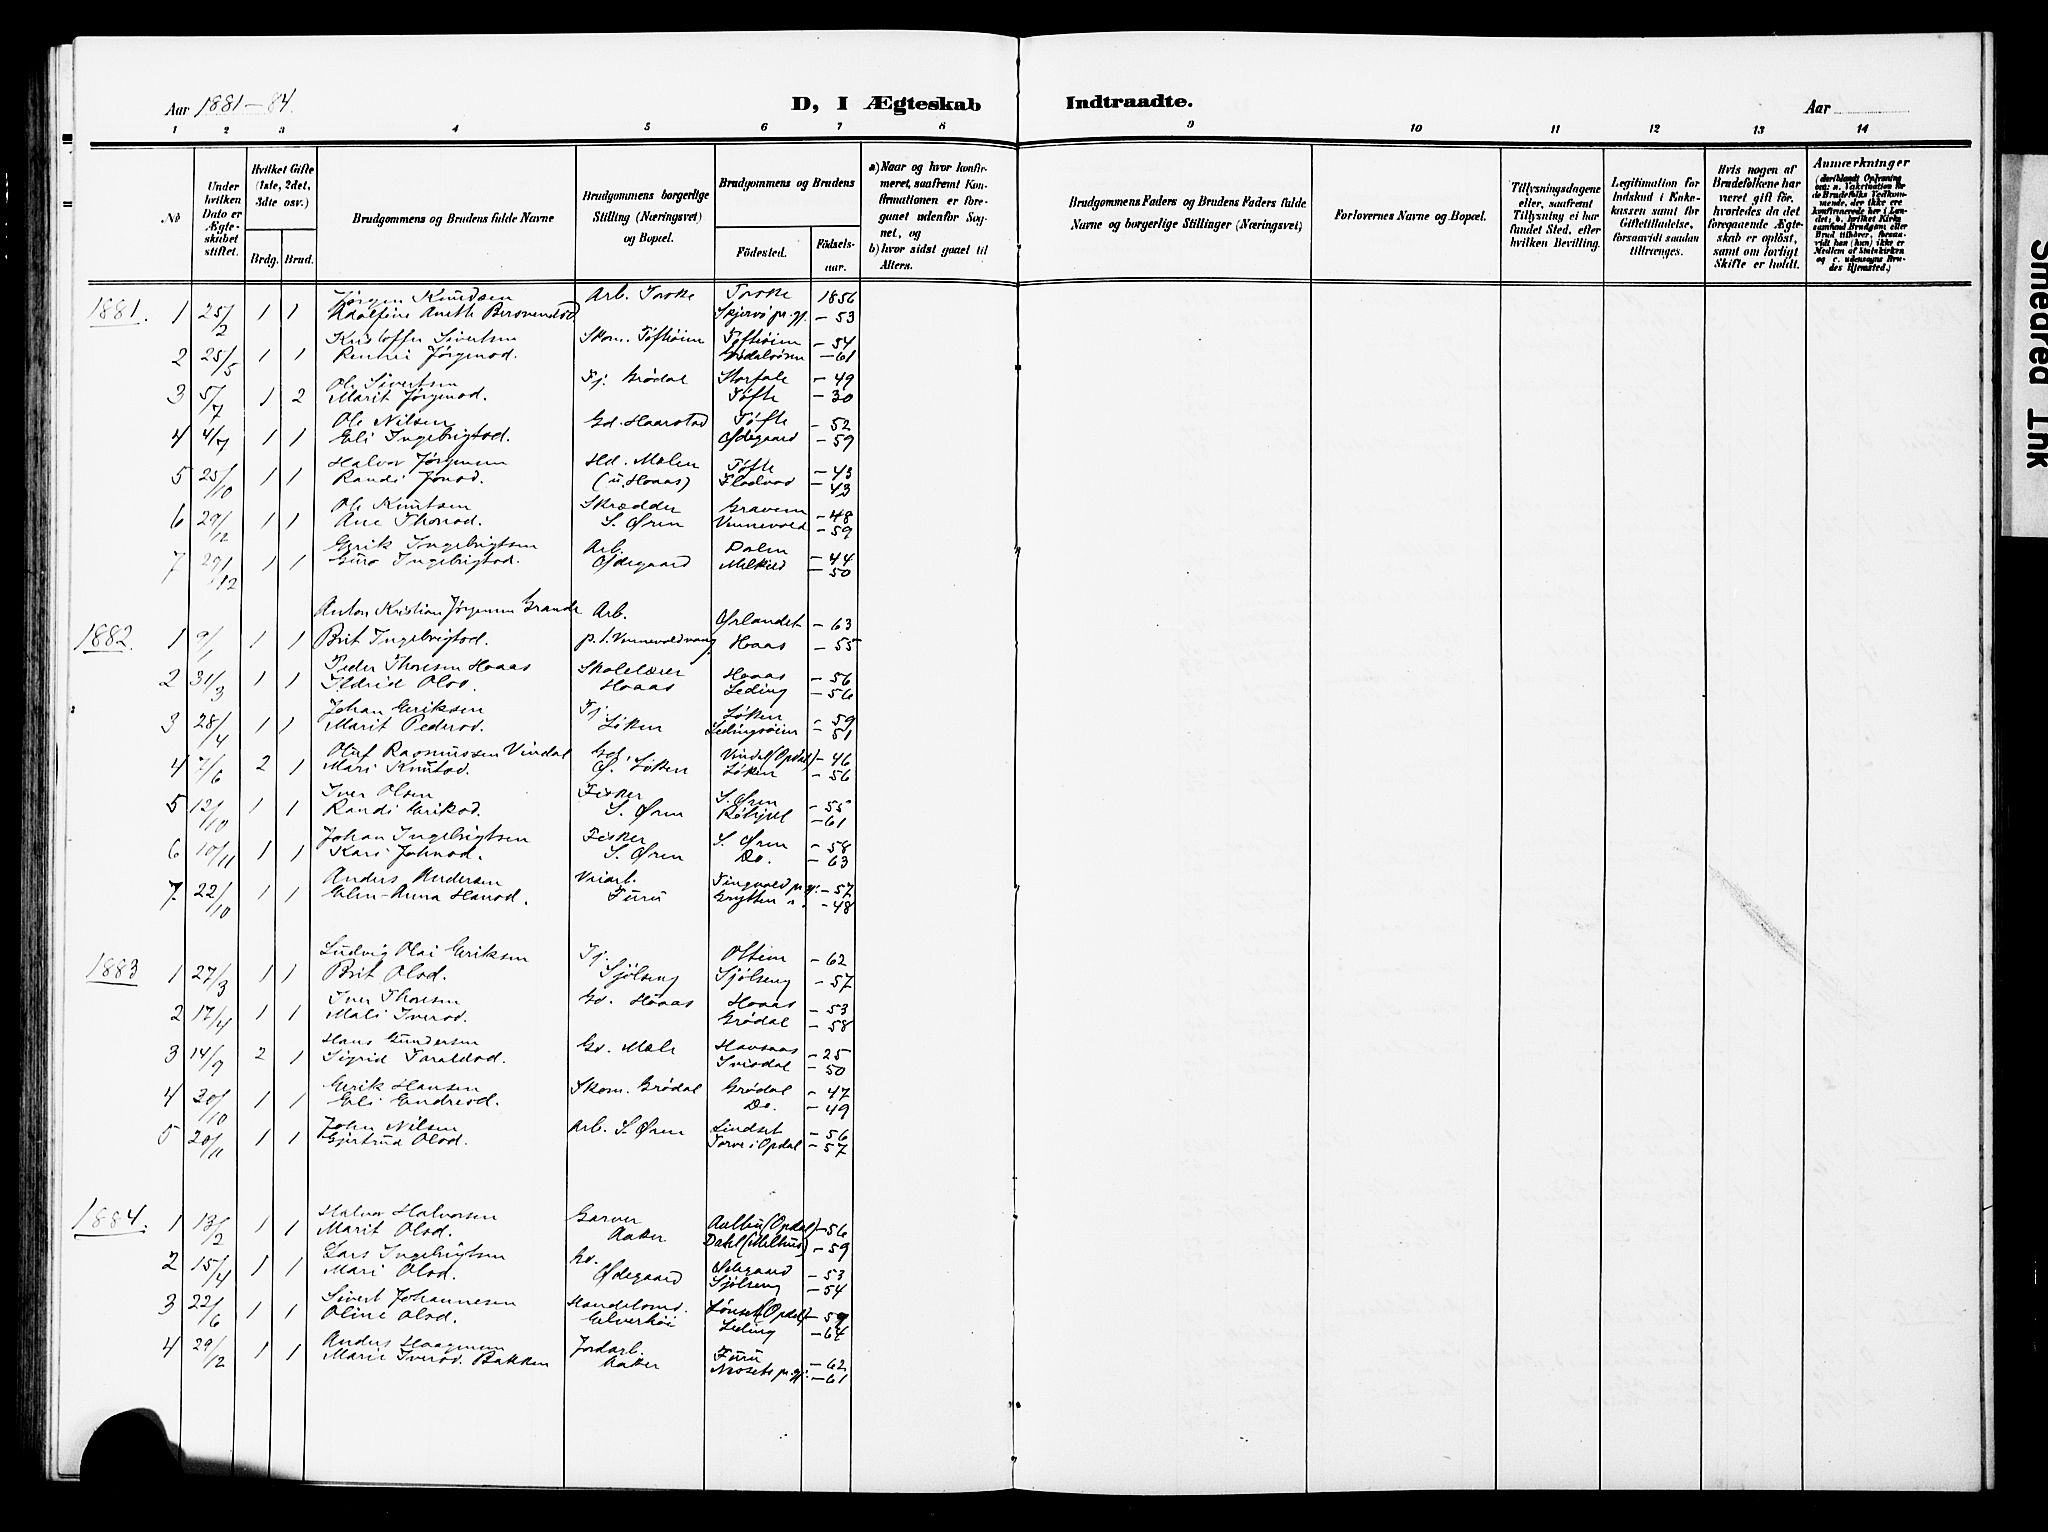 Aar 1881-84.
D, I Ægteskab Indtraadte.
Aar
1 2 3 4 5 6 7 8 9 10 11 12 13 14
No
Under hvilken Dato er Ægteskabet stiftet.
Hvilket Gifte (1ste, 2det, 3die osv.)
Brdg. Brud.
Brudgommens og Brudens fulde Navne
Brudgommens borgerlige Stilling (Næringsvei) og Bopæl.
Brudgommens og Brudens
Fødested. Fødselsaar.
a) Naar og hvor konfirmeret, saafremt Konfirmationen er foregaaet udenfor Sognet, og
b) hvor sidst gaaet til Alters.
Brudgommens Faders og Brudens Faders fulde Navne og borgerlige Stillinger (Næringsvei)
Forlovernes Navne og Bopæl.
Tillysningsdagene eller, saafremt Tillysning ei har fundet Sted, efter hvilken Bevilling.
Legitimation for Indskud i Enkekassen samt for Giftetilladelse, forsaavidt saadan tiltrænges.
Hvis nogen af Brudefolkene har været gift før, hvorledes da det foregaaende Ægteskab er opløst, samt om lovligt Skifte er holdt.
Anmærkninger
(deriblandt Oplysning om: a. Vaksination for de Brudefolks Vedkommende, der ikke ere konfirmerede her i Landet; b. hvilket Kirkesamfund Brudgom eller Brud tilhører, forsaavidt han (hun) ikke er Medlem af Statskirken og c. udensogns Brudes Hjemsted.)
1881.
Jørgen Knudsen Arb. Torske Torske 1856
1 25/2 1 1 Adolfine Aneth Bersvendsd Skjervø pr.gj. - 53
Kristoffer Sivertsen Skom. Toftøien Toftøien - 54
2 25/5 1 1 Jørgensd. - 61
Ole Sivertsen Fj. Grødal Storfale - 49
3 5/7 1 2 Marit Jørgensd. Tøfte - 30
Ole Nilsen Gd. Haarstad Tøfte - 52
4 4/7 1 1 Eli Ingebrigtsd. Ødegaard - 59
Halvor Jørgensen Hd. Mælen Tøfte - 43
5 25/10 1 1 Randi Jonsd. (u. Hoaas) Fladvad - 43
Ole Knutsen Skrædder Gravem - 48
6 29/12 1 1 Ane Thorsd. S. Øren Vennevold - 59
Erik Ingebrigtsen Arb. Dalen - 44
7 29/12 1 1 Guro Ingebrigtsd. Ødegaard Melkild - 50
1882.
Anton Kristian Jørgensen Grande Arb. Ørlandet - 63
1 9/1 1 1 Brit Ingebrigtsd. p.t. Vennevoldvang Hoaas - 55
Peder Thoresen Hoaas Skolelærer Hoaas - 56
2 31/3 1 1 Ildrid Olsd. Hoaas Leding - 56
Johan Eriksen Fj. Løken - 59
3 28/4 1 1 Marit Pedersd. Løken Ledingsøien - 51
Oluf Rasmussen Vindal Gd. Vindal (Opdal) - 46
4 7/6 2 1 Mari Knutsd. Ø. Løken Løken - 56
Iver Olsen Fisker S. Øren - 55
5 12/10 1 1 Randi Eriksd. S. Øren - 61
Johan Ingebrigtsen Fisker S. Øren - 58
6 10/11 1 1 Kari Johnsd. S. Øren Do. - 63
Anders Andersen Veiarb. Tingvold pr.gj. - 57
7. 22/10 1 1 Elen-Anna Hansd. Furu Grytten ". - 48
1883
Ludvig Olai Eriksen Fj. - 62
1 27/3 1 1 Brit Olsd. Sjølseng Sjølseng - 57
Iver Thoresen Gd. Hoaas Hoaas - 53
2 17/4 1 1 Mali Iversd. Grødal - 58
Hans Gundersen Gd. Mæle Havsaas - 25
3 14/7 2 1 Sigrid Taraldsd. Svisdal - 50
Erik Hansen Skom. Grødal Grødal - 47
4 20/10 1 1 Eli Endresd. Do. - 49
John Nilsen Arb. S. Øren Lindset - 56
5 20/11 1 1 Gjertrud Olsd. Torve i Opdal - 57
1884.
Halvor Halvorsen Garver Aalbu (Opdal) - 56
1 13/2 1 1 Marit Olsd. Aaker Dahl (Melhus) - 59
Lars Ingebrigtsen Gd. Ødegaard - 53
2 15/4 1 1 Mari Olsd. Ødegaard Sjølseng - 54
Sivert Johannesen Handelsmd. Lønset (Opdal) - 59
3 22/6 1 1 Oline Olsd. Elverhøi Leding - 64
Anders Haagensen Jordarb. Furu - 62
4 29/12 1 1 Marie Iversd. Bakken Aaker Nesset pr.gj. - 61
Smeared Ink